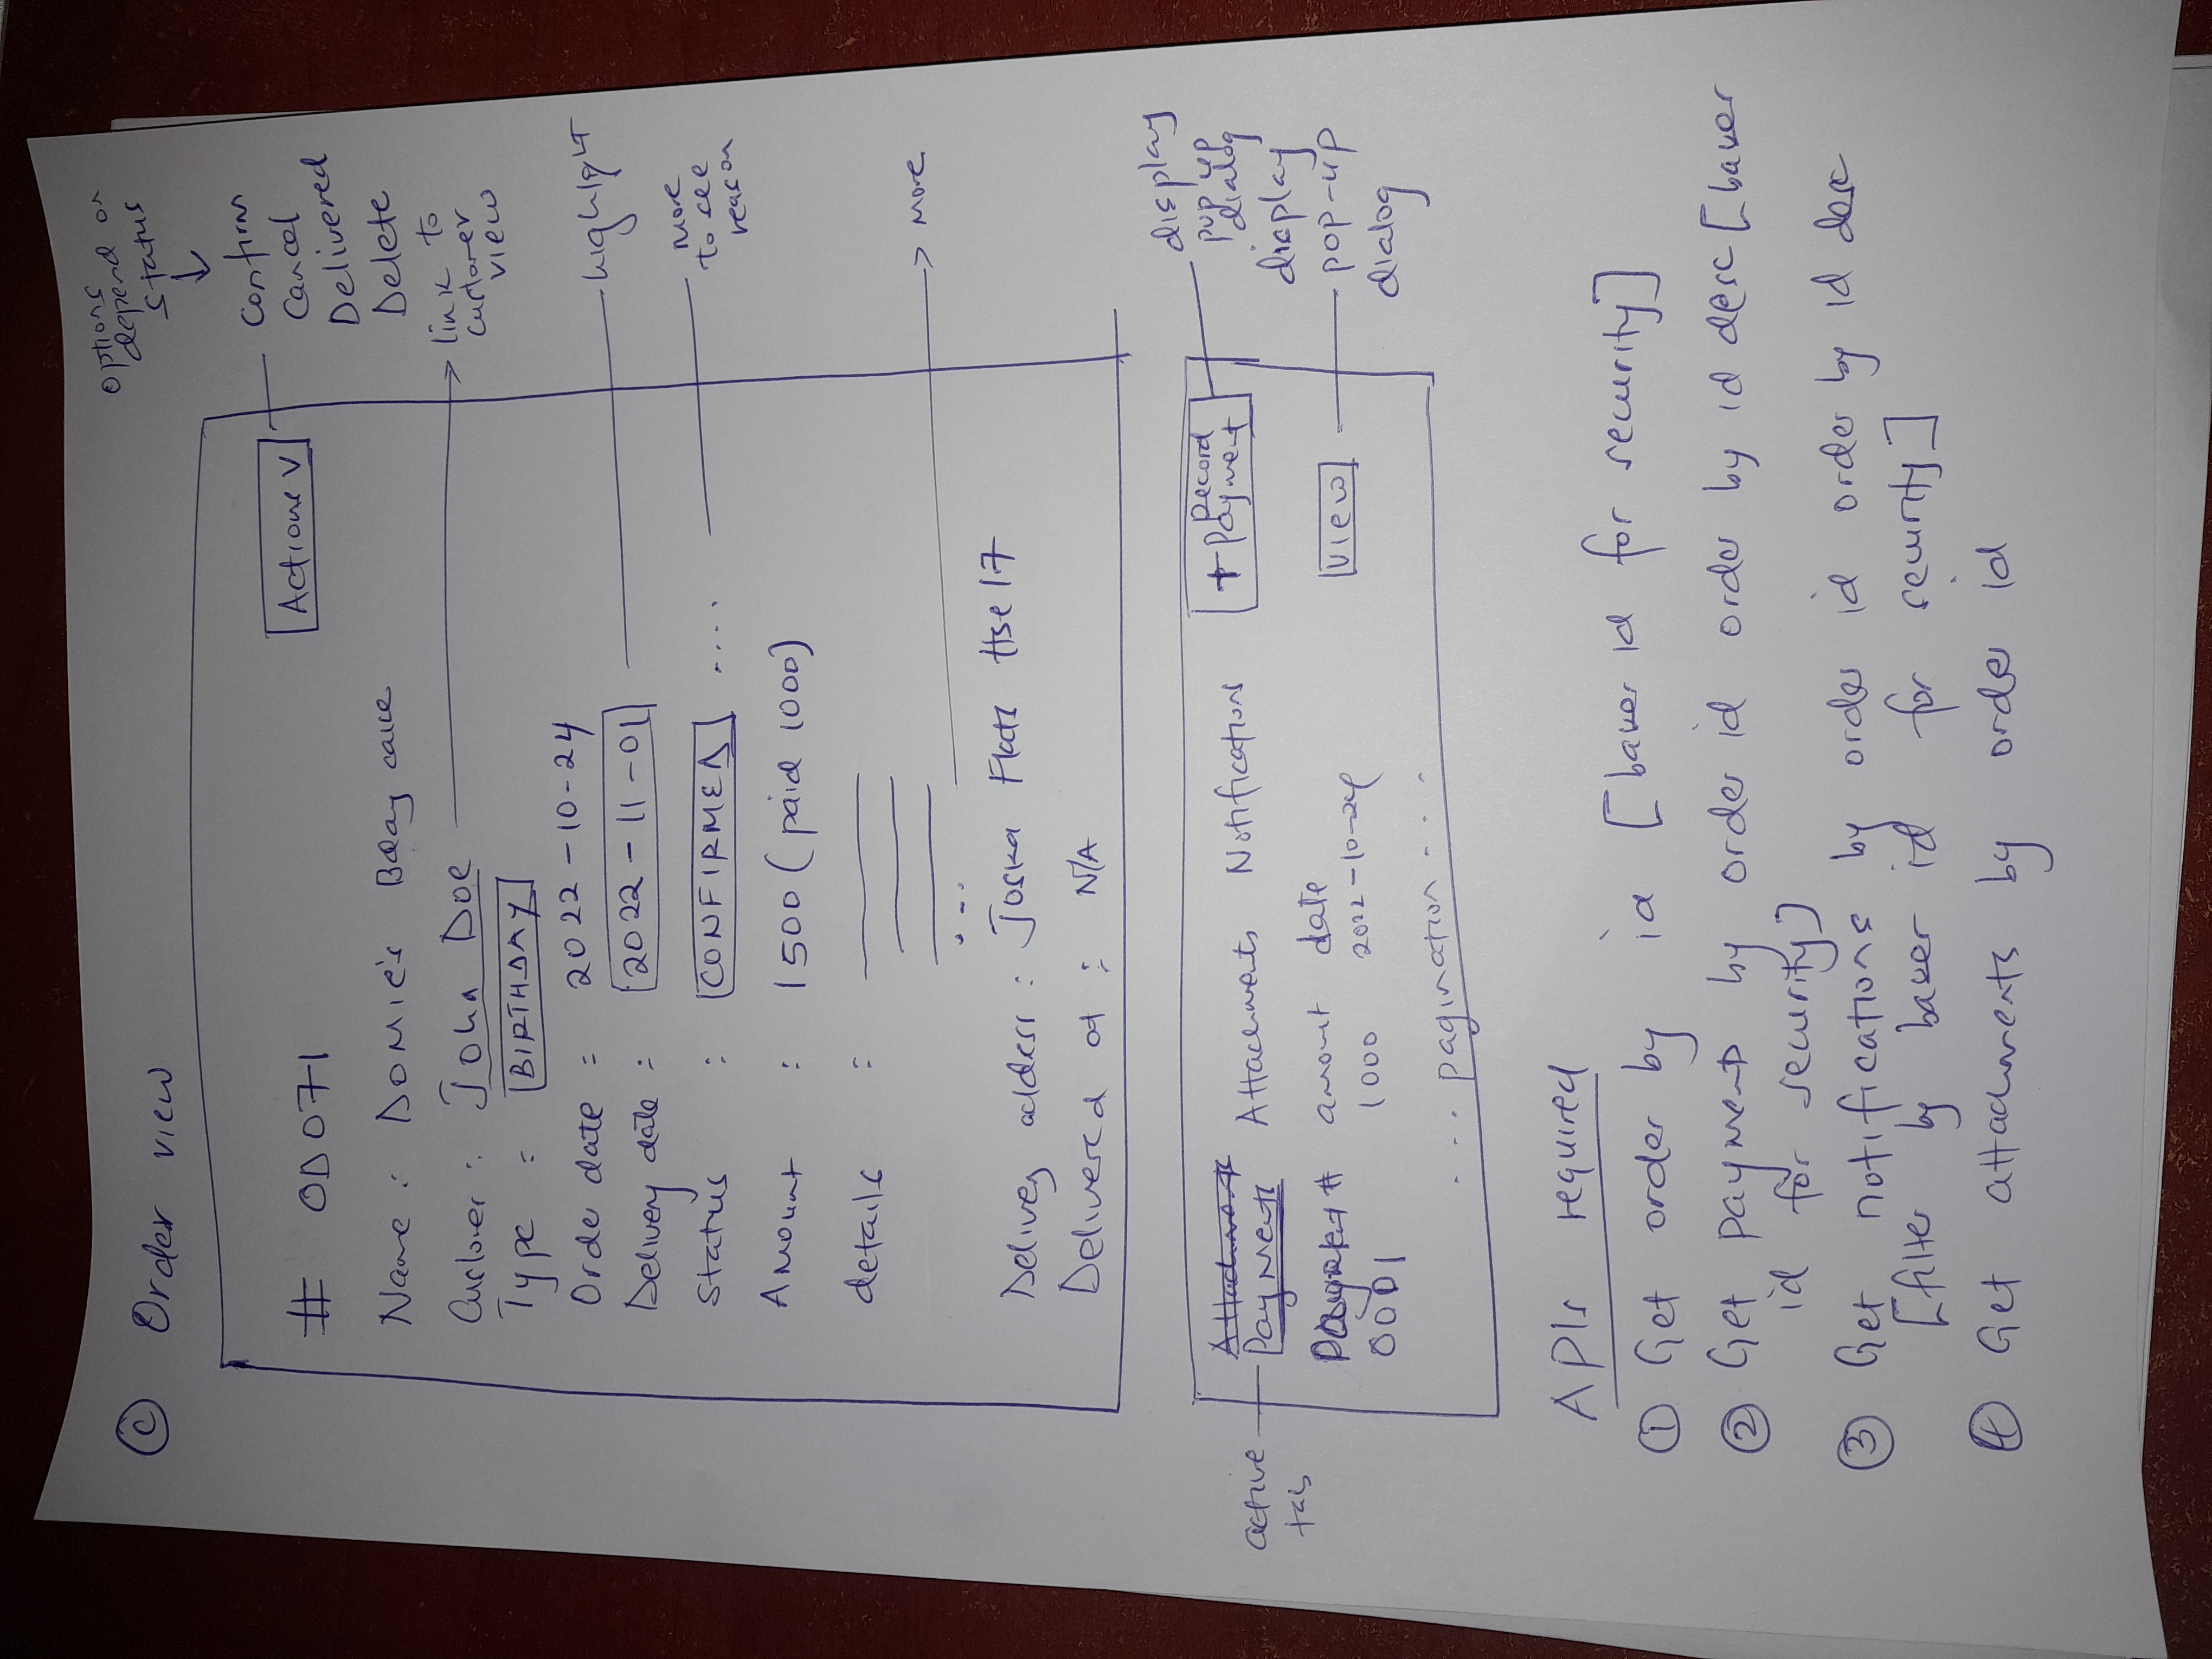 C Order view
options
depend on
status
↓
# OD071
Actions v
Confirm
Cancel
Delivered
Delete
Name : Domie's Bday cake
Customer : John Doe
link to
customer
view
Type : BIRTHDAY
Order date : 2022-10-24
Delivery date : 2022-11-01
highlight
Status : CONFIRMED ....
more
to see
reason
Amount : 1500 (paid 1000)
details :
...
more
Delivery address : Joska Flats Hse 17
Delivered at : N/A
active
tab
Attachments
Payments Attachments Notifications
+ Record
Payment
display
pop up
dialog
Payment # amount date
0001 1000 2022-10-24
view
display
pop-up
dialog
... pagination ...
APIs required
1 Get order by id [baker id for security]
2 Get payments by order id order by id desc [baker
id for security]
3 Get notifications by order id order by id desc
[filter by baker id for security]
4 Get attachments by order id